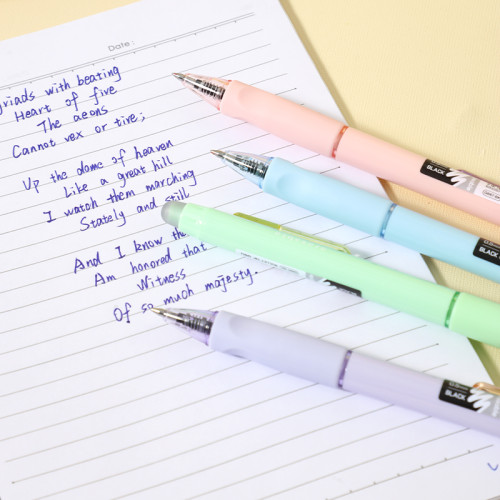 Date:
yriads with beating
Heart of five
The aeons
Cannot vex or tire;
Up the dome of heaven
Like a great hill
I watch them marching
Stately and still
And I know the
Am honored that
Witness
Of so much majesty.
BLACK
BLACK
BLACK